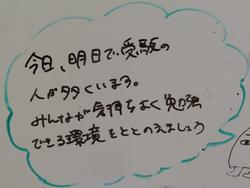 今日、明日で受験の
人が多くいます。
みんなが気持ちよく勉強
できる環境をととのえましょう